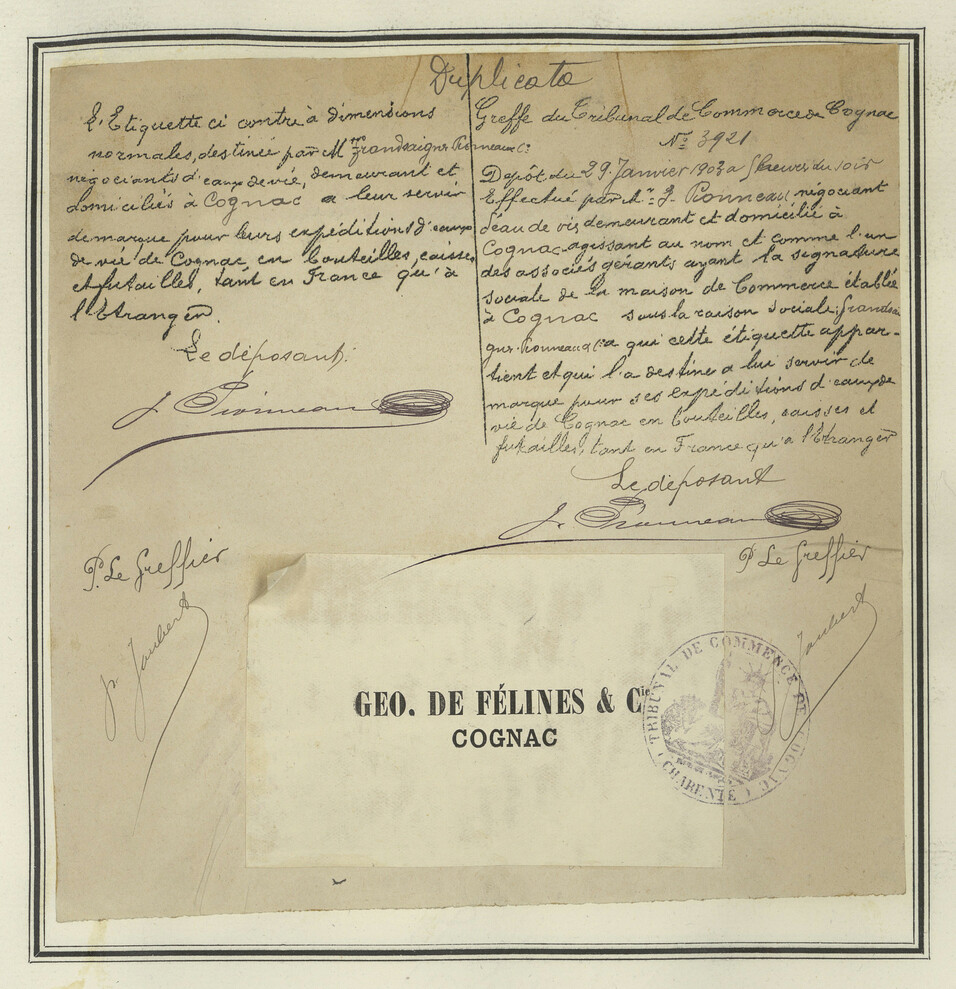 Duplicata
L'Etiquette ci contre à dimensions
normales, destinée par Mrs Grandsaigne Pronneau & Cie
négociants d'eaux de vie, demeurant et
domiciliés à Cognac a leur servir
de marque pour leurs expéditions d'eaux
de vie de Cognac en bouteilles, caisses
et futailles, tant en France qu'à
l'Etranger.
Le déposant.
J. Pronneau
P. Le Greffier
p. Jaubert
Greffe du Tribunal de Commerce de Cognac
No 3921
Dépôt du 29 Janvier 1903 a 3 heures du soir
Effectué par Mr J. Pronneau, négociant
d'eau de vie demeurant et domicilié à
Cognac, agissant au nom et comme l'un
des associés gérants ayant la signature
sociale de la maison de Commerce établie
à Cognac sous la raison sociale: Grandsai
gne Pronneau & Cie a qui cette étiquette appar-
tient et qui l'a destine a lui servir de
marque pour ses expéditions d'eaux de
vie de Cognac en bouteilles, caisses et
futailles, tant en France qu'a l'Etranger
Le déposant
J. Pronneau
P. Le Greffier
Jaubert
GEO. DE FÉLINES & Cie
COGNAC
TRIBUNAL DE COMMERCE DE COGNAC
(CHARENTE)